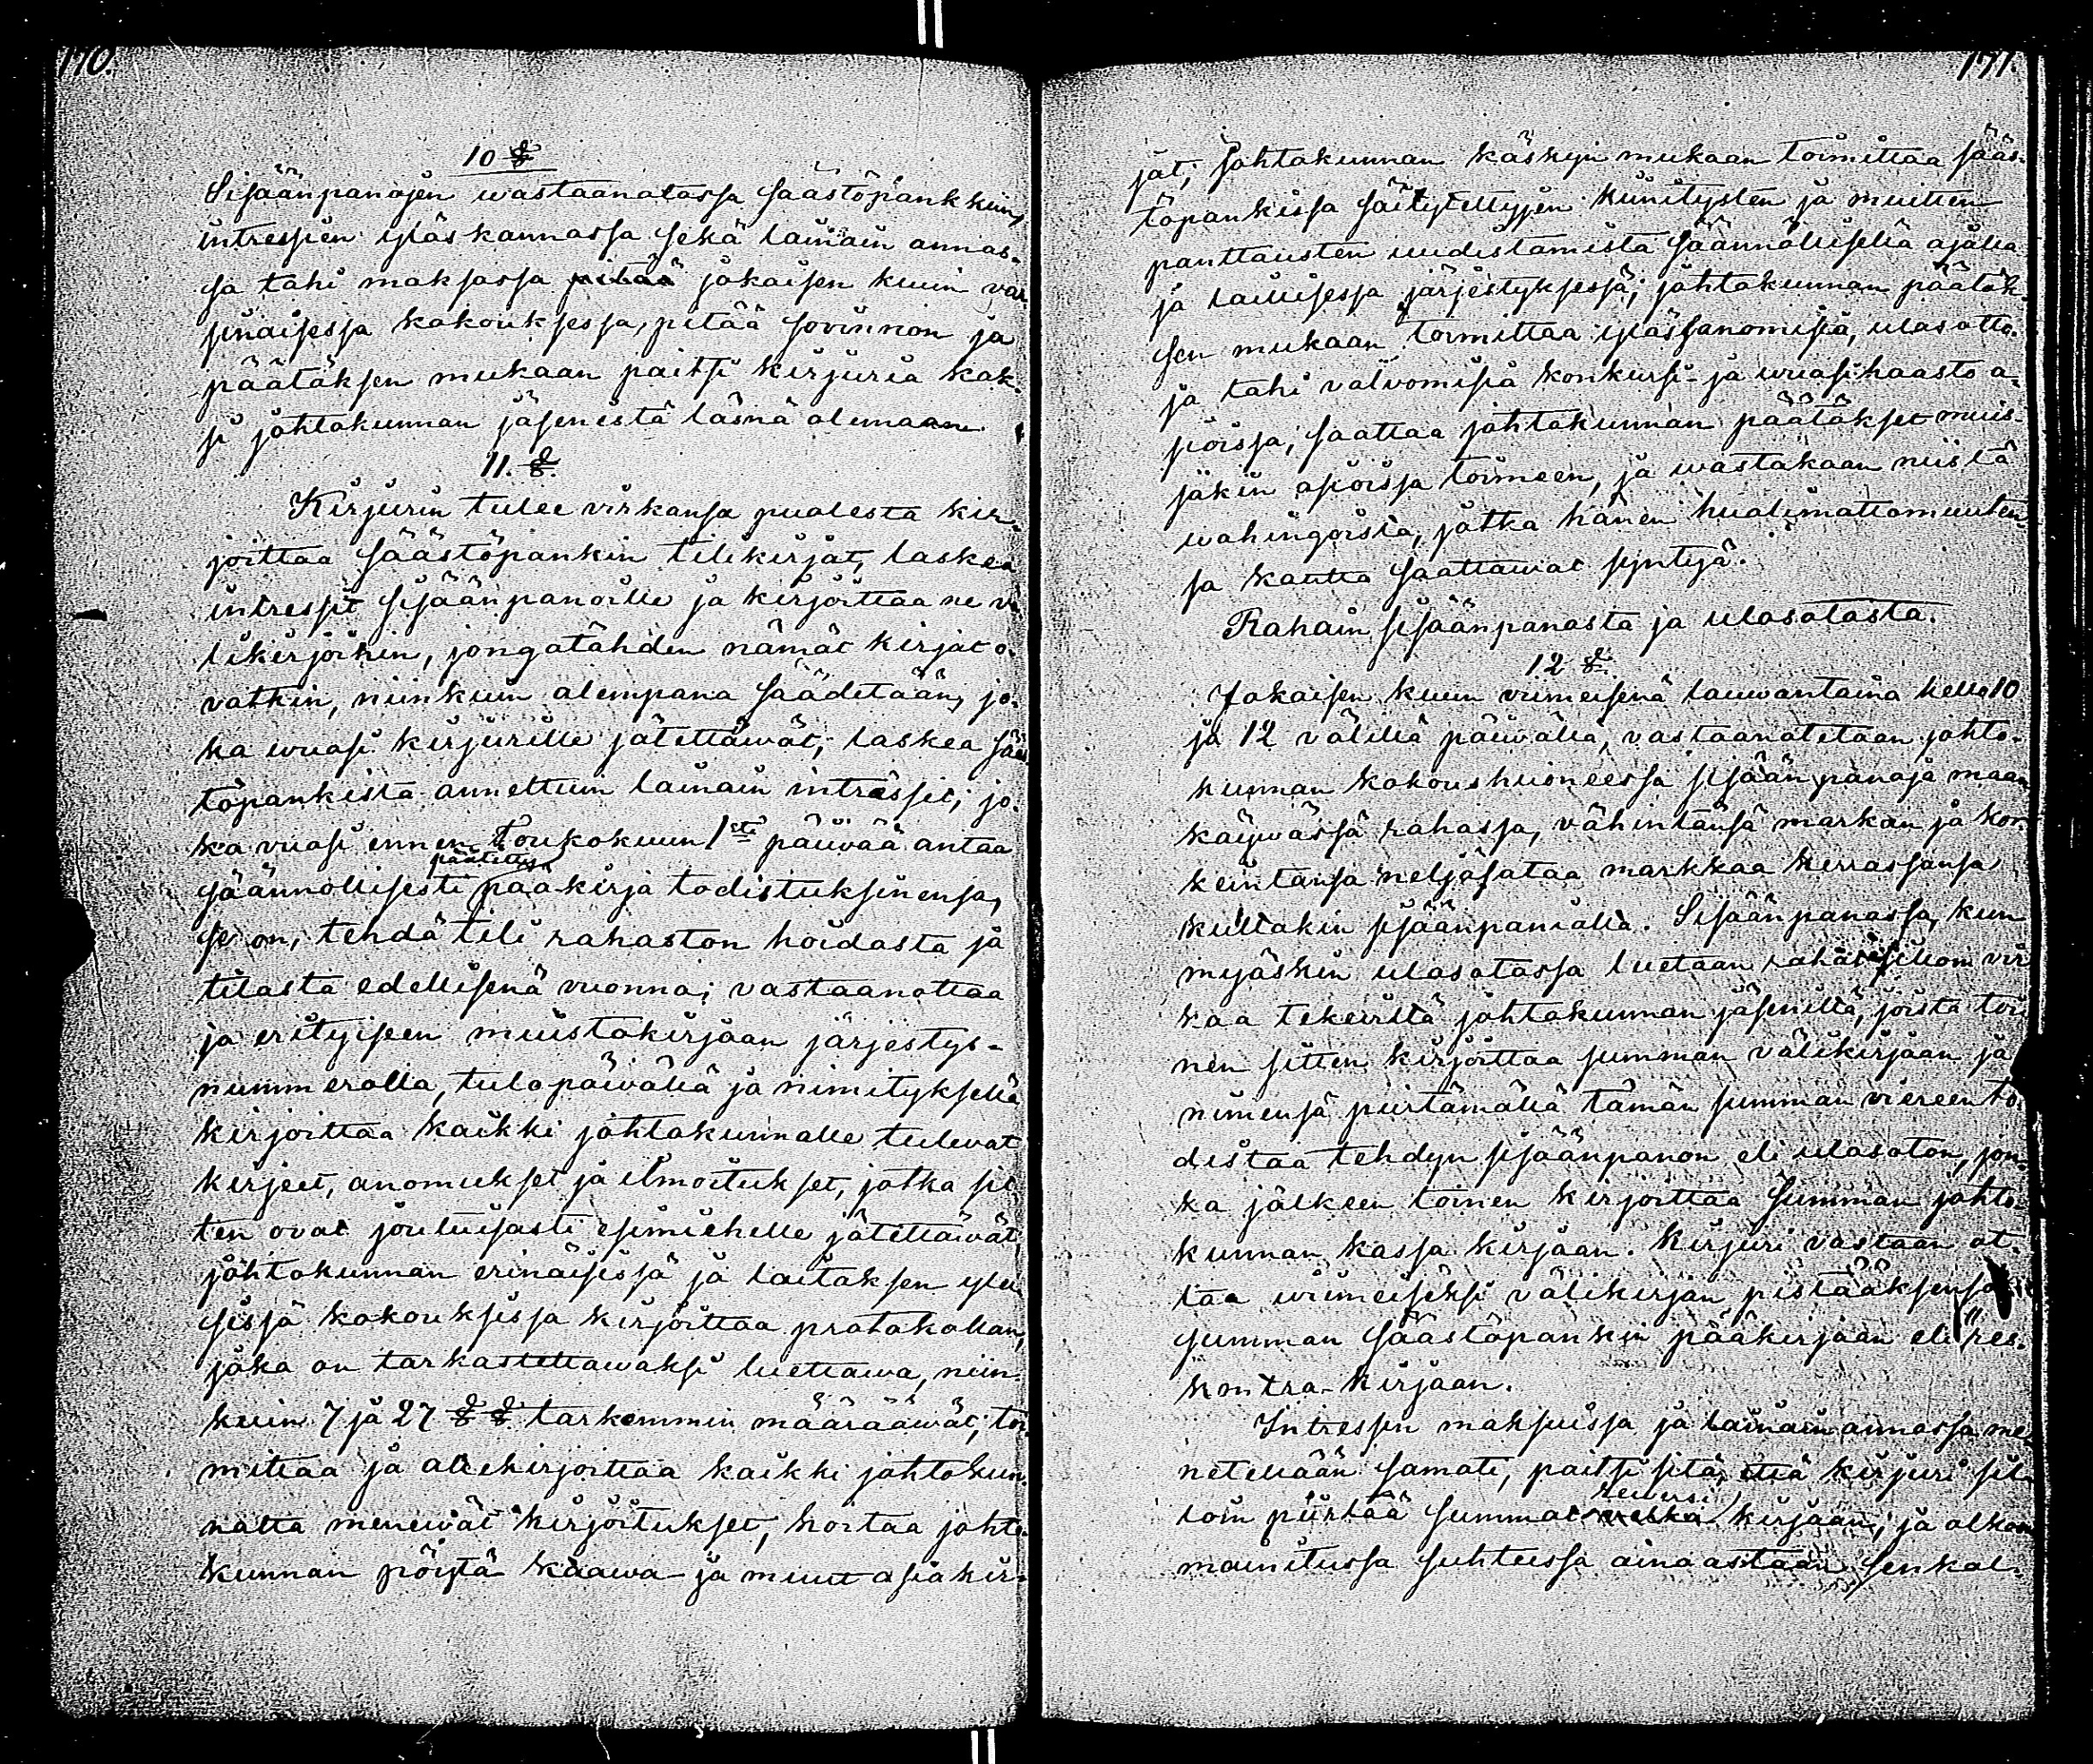 170.
10 §
Sisäänpanojen wastaanotossa säästöpankkiin,
intressien yläskannossa sekä lainain annos-
sa tahi maksossa jokaisen kuun var-
sinaisessa kokouksessa, pitää sovinnon ja
päätöksen mukaan paitsi kirjuria kak-
si johtokunnan jäsenistä läsnä olemaan.
11. §.
Kirjurin tulee virkansa puolesta kir-
joittaa säästöpankin tilikirjat, laskea
intressit sisäänpanoille ja kirjoittaa ne vä-
likirjoihin, jongatähden nämät kirjat o-
vatkin, niinkuin alempana säädetään, jo-
ka wuosi kirjurille jätettäwät; laskea sääs
töpankista annettuin lainain intressit; jo-
ka vuosi ennen Toukokuun 1stä päiwää antaa
säännöllisesti päätettyä pääkirja todistuksinensa,
se on, tehdä tili rahaston hoidosta ja
tilasta edellisenä vuonna; vastaanottaa
ja erityiseen muistokirjaan järjestys-
nummerolla, tulopäiwällä ja nimityksellä
kirjoittaa kaikki johtokunnalle tulevat
kirjeet, anomukset ja ilmoitukset, jotka sit
ten ovat joutuisasti esimiehelle jätettäwät;
johtokunnan erinäisissä ja laitoksen ylei
sissä kokouksissa kirjoittaa protokollan,
joka on tarkastettawaksi luettawa, niin-
kuin 7 ja 27 § § tarkemmin määrääwät; toi-
mittaa ja allekirjoittaa kaikki johtokun-
nalta menewät kirjoitukset, hoitaa johto-
kunnan pöytä kaawa- ja muut asiakir-
171.
jat; Johtokunnan käskyn mukaan toimittaa sääs-
töpankissa säilytettyjen kiinitysten ja muitten
panttausten uudistamista säännöllisellä ajalla
ja laillisessa järjestyksessä; johtokunnan päätök-
sen mukaan toimittaa ylössanomisia, ulosotto-
ja tahi valvomisia konkurssi- ja wuosihaasto a-
sioissa; saattaa johtokunnan päätökset muis-
sakin asioissa toimeen, ja wastakaan niistä
wahingoista, jotka hänen huolimattomuuten-
sa kautta saattawat syntyä.
Rahain sisäänpanosta ja ulosotosta.
12 §.
Jokaisen kuun viimeisenä lauwantaina kello 10
ja 12 välillä päiwällä, vastaanotetaan johto-
kunnan kokoushuoneessa sisäänpanoja maan
käywässä rahassa, vähintänsä markan ja kor-
keintansa neljäsataa markkaa kerrassansa
kultakin sisäänpanialta. Sisäänpanossa, kuin
myöskin ulosotossa luetaan rahat silloin vir
kaa tekeviltä johtokunnan jäseniltä, joista toi
nen sitten kirjoittaa summan välikirjaan ja
nimensä piirtämällä tämän summan viereen to-
distaa tehdyn sisäänpanon eli ulosoton, jon-
ka jälkeen toinen kirjoittaa summan johto-
kunnan kassa kirjaan. Kirjuri vastaan ot-
taa wiimeiseksi välikirjan pistääksensä
summan säästöpankin pääkirjaan eli res-
kontra-kirjaan.
Intressin maksuissa ja lainain annossa me-
netellään samate, paitsi sitä, että kirjuri sil-
loin piirtää summat rewersi kirjaan; ja olkoon
mainitussa suhteessa ainoastaan senkal-